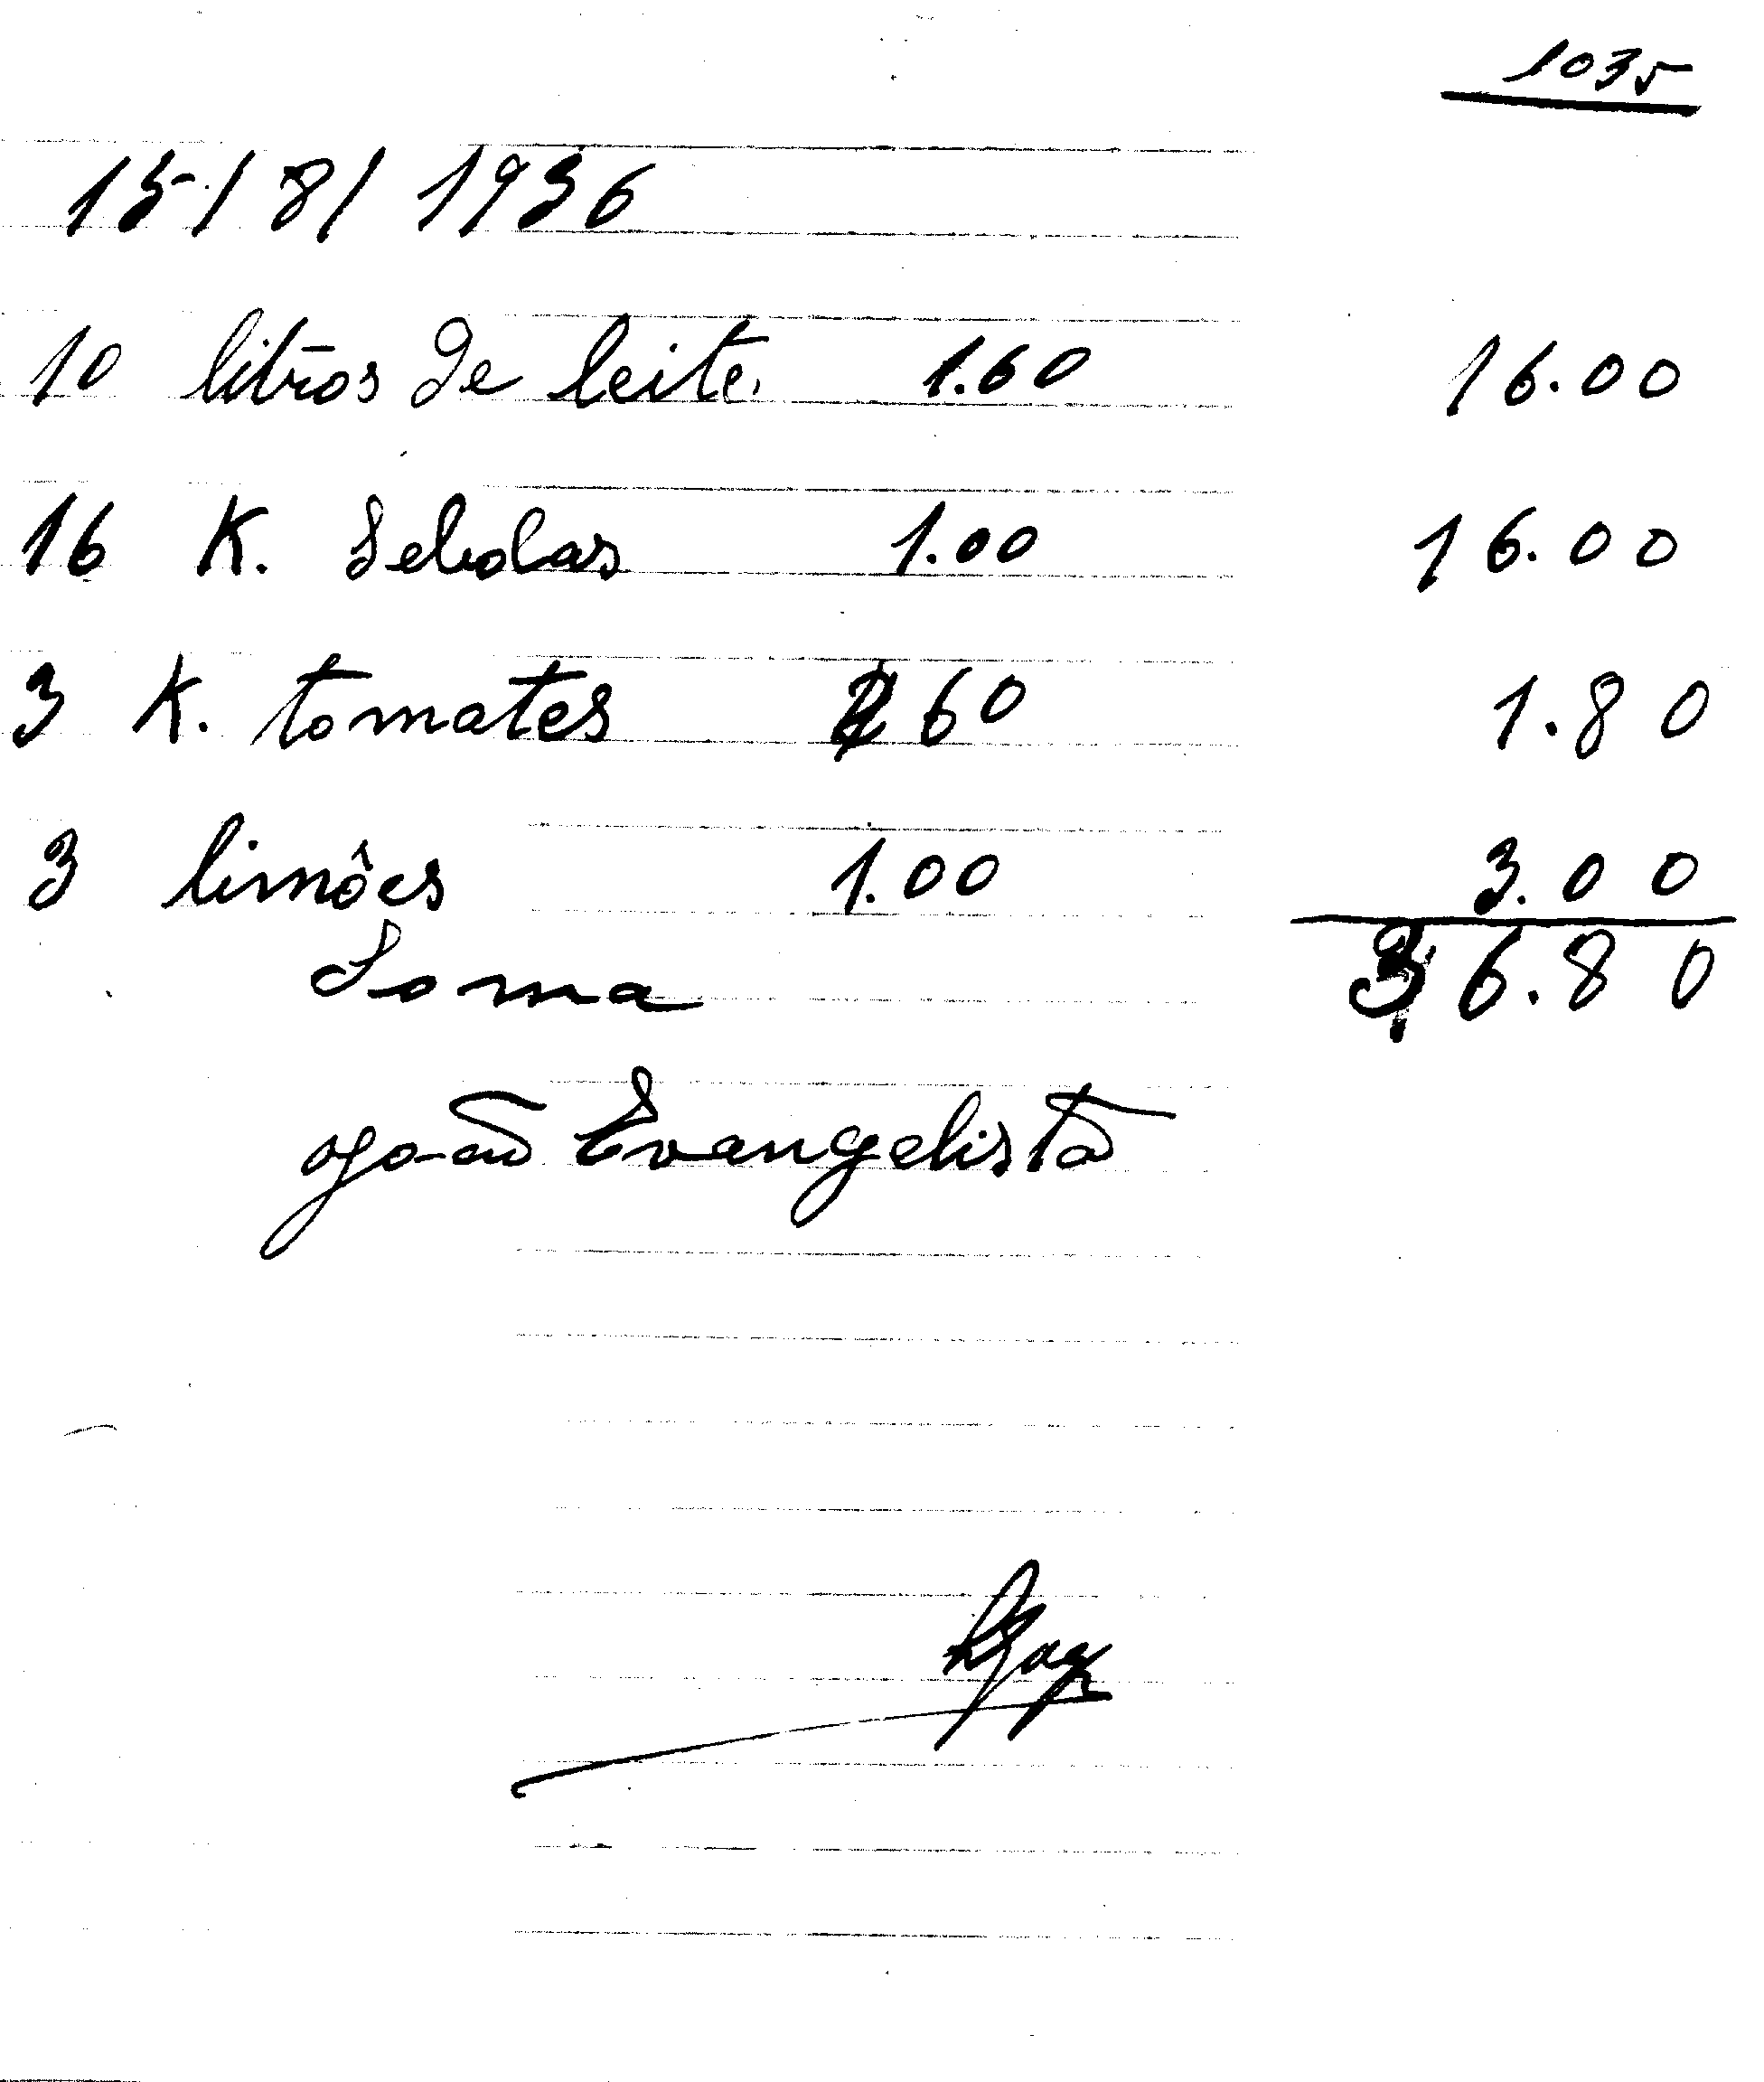 1035
15/8/1936
10 litros de leite. 1.60 16.00
16 K. Sebolas 1.00 16.00
3 K. tomates 60 1.80
3 limões 1.00 3.00
Soma 36.80
João Evangelista